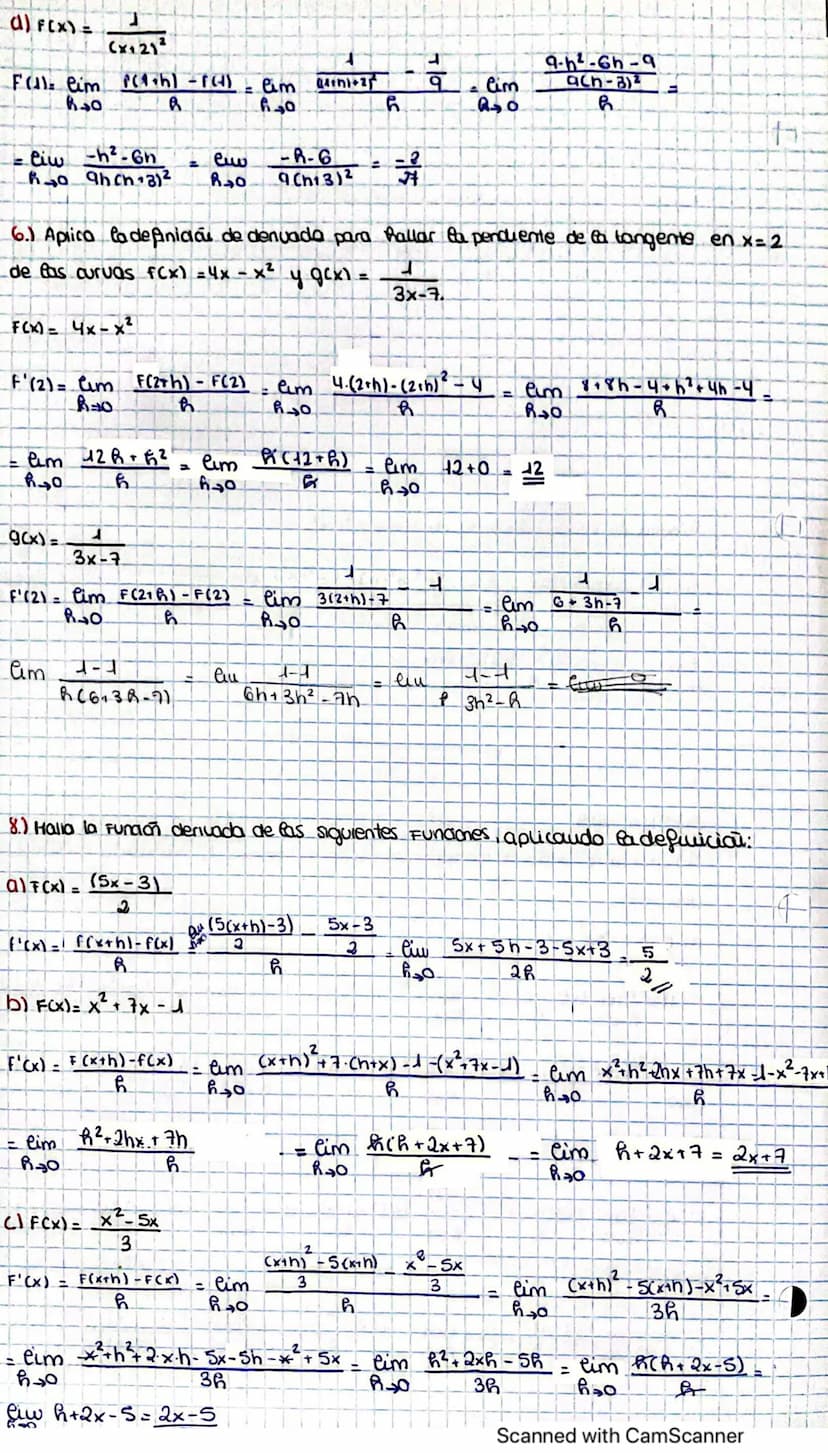 d) F(x) = 1/(x+2)²
F'(1) = lim h→0 (F(1+h) - F(1))/h = lim h→0 (1/((1+h)+2)² - 1/9)/h = lim h→0 ((9-h²-6h-9)/(9(h-3)²))/h =
= lim h→0 (-h²-6h)/(9h(h+3)²) = lim h→0 (-h-6)/(9(h+3)²) = -2/27
6.) Aplica la definición de derivada para hallar la pendiente de la tangente en x=2
de las curvas f(x) = 4x - x² y g(x) = 1/(3x-7).
F(x) = 4x - x²
F'(2) = lim h→0 (F(2+h) - F(2))/h = lim h→0 (4·(2+h)-(2+h)² - 4)/h = lim h→0 (8+8h-4+h²+4h-4)/h =
= lim h→0 (12h + h²)/h = lim h→0 h(12+h)/h = lim h→0 12+0 = 12
g(x) = 1/(3x-7)
F'(2) = lim h→0 (F(2+h) - F(2))/h = lim h→0 (1/(3(2+h)-7) - 1)/h = lim h→0 (1/(6+3h-7) - 1)/h =
lim (1-1)/(h(6+3h-7)) = lim (1-1)/(6h+3h²-7h) = lim (1-1)/(3h²-h) =
8.) Halla la función derivada de las siguientes funciones, aplicando la definición:
a) F(x) = (5x-3)/2
f'(x) = (f(x+h)-f(x))/h = lim h→0 ((5(x+h)-3)/2 - (5x-3)/2)/h = lim h→0 (5x+5h-3-5x+3)/2h = 5/2
b) F(x) = x² + 7x - 1
F'(x) = (F(x+h)-f(x))/h = lim h→0 ((x+h)²+7·(h+x)-1-(x²+7x-1))/h = lim h→0 (x²+h²+2hx+7h+7x-1-x²-7x+1)/h
= lim h→0 (h²+2hx+7h)/h = lim h→0 h(h+2x+7)/h = lim h→0 h+2x+7 = 2x+7
c) F(x) = (x²-5x)/3
F'(x) = (F(x+h)-F(x))/h = lim h→0 (((x+h)²-5(x+h))/3 - (x²-5x)/3)/h = lim h→0 ((x+h)²-5(x+h)-x²+5x)/3h =
= lim h→0 (x²+h²+2·x·h-5x-5h-x²+5x)/3h = lim h→0 (h²+2xh-5h)/3h = lim h→0 h(h+2x-5)/h =
lim h→0 h+2x-5 = 2x-5
Scanned with CamScanner